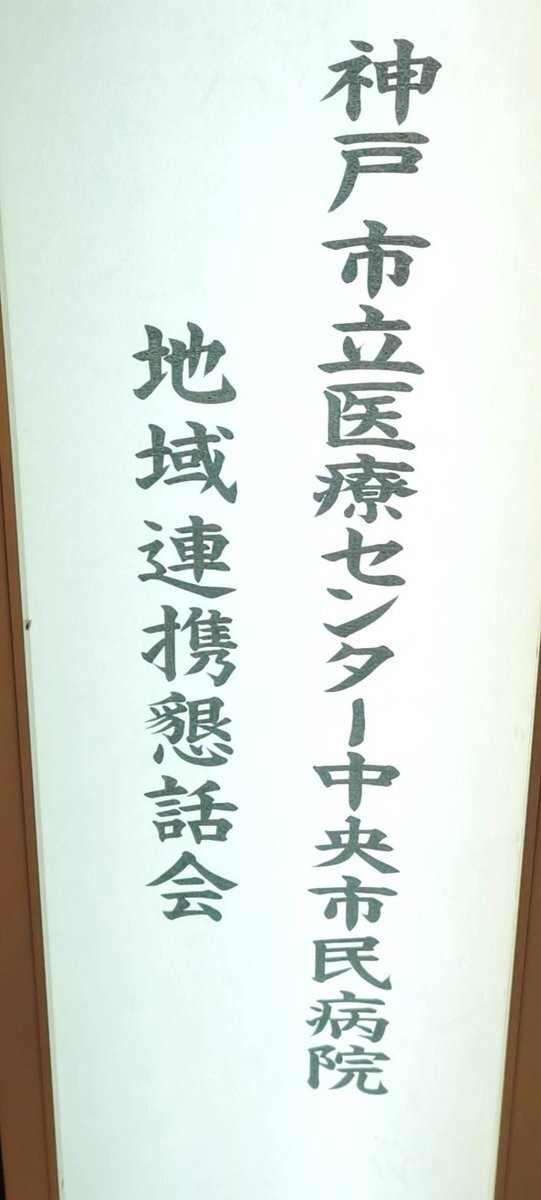 神戸市立医療センター中央市民病院
地域連携懇話会